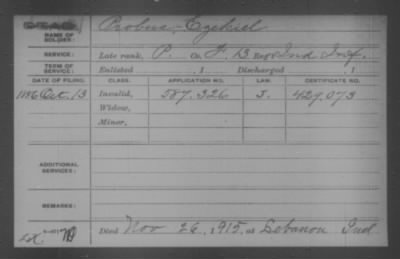 DEAD
NAME OF SOLDIER: Probus, Ezekiel
SERVICE: Late rank, P. Co. F, 13 Reg't Ind Inf.
TERM OF SERVICE: Enlisted , 1 Discharged , 1
DATE OF FILING. CLASS. APPLICATION NO. LAW. CERTIFICATE NO.
1886 Oct. 13 Invalid, 587.326 J. 429.073
Widow,
Minor,
ADDITIONAL SERVICES:
REMARKS:
Died Nov 26, 1915, at Lebanon Ind.